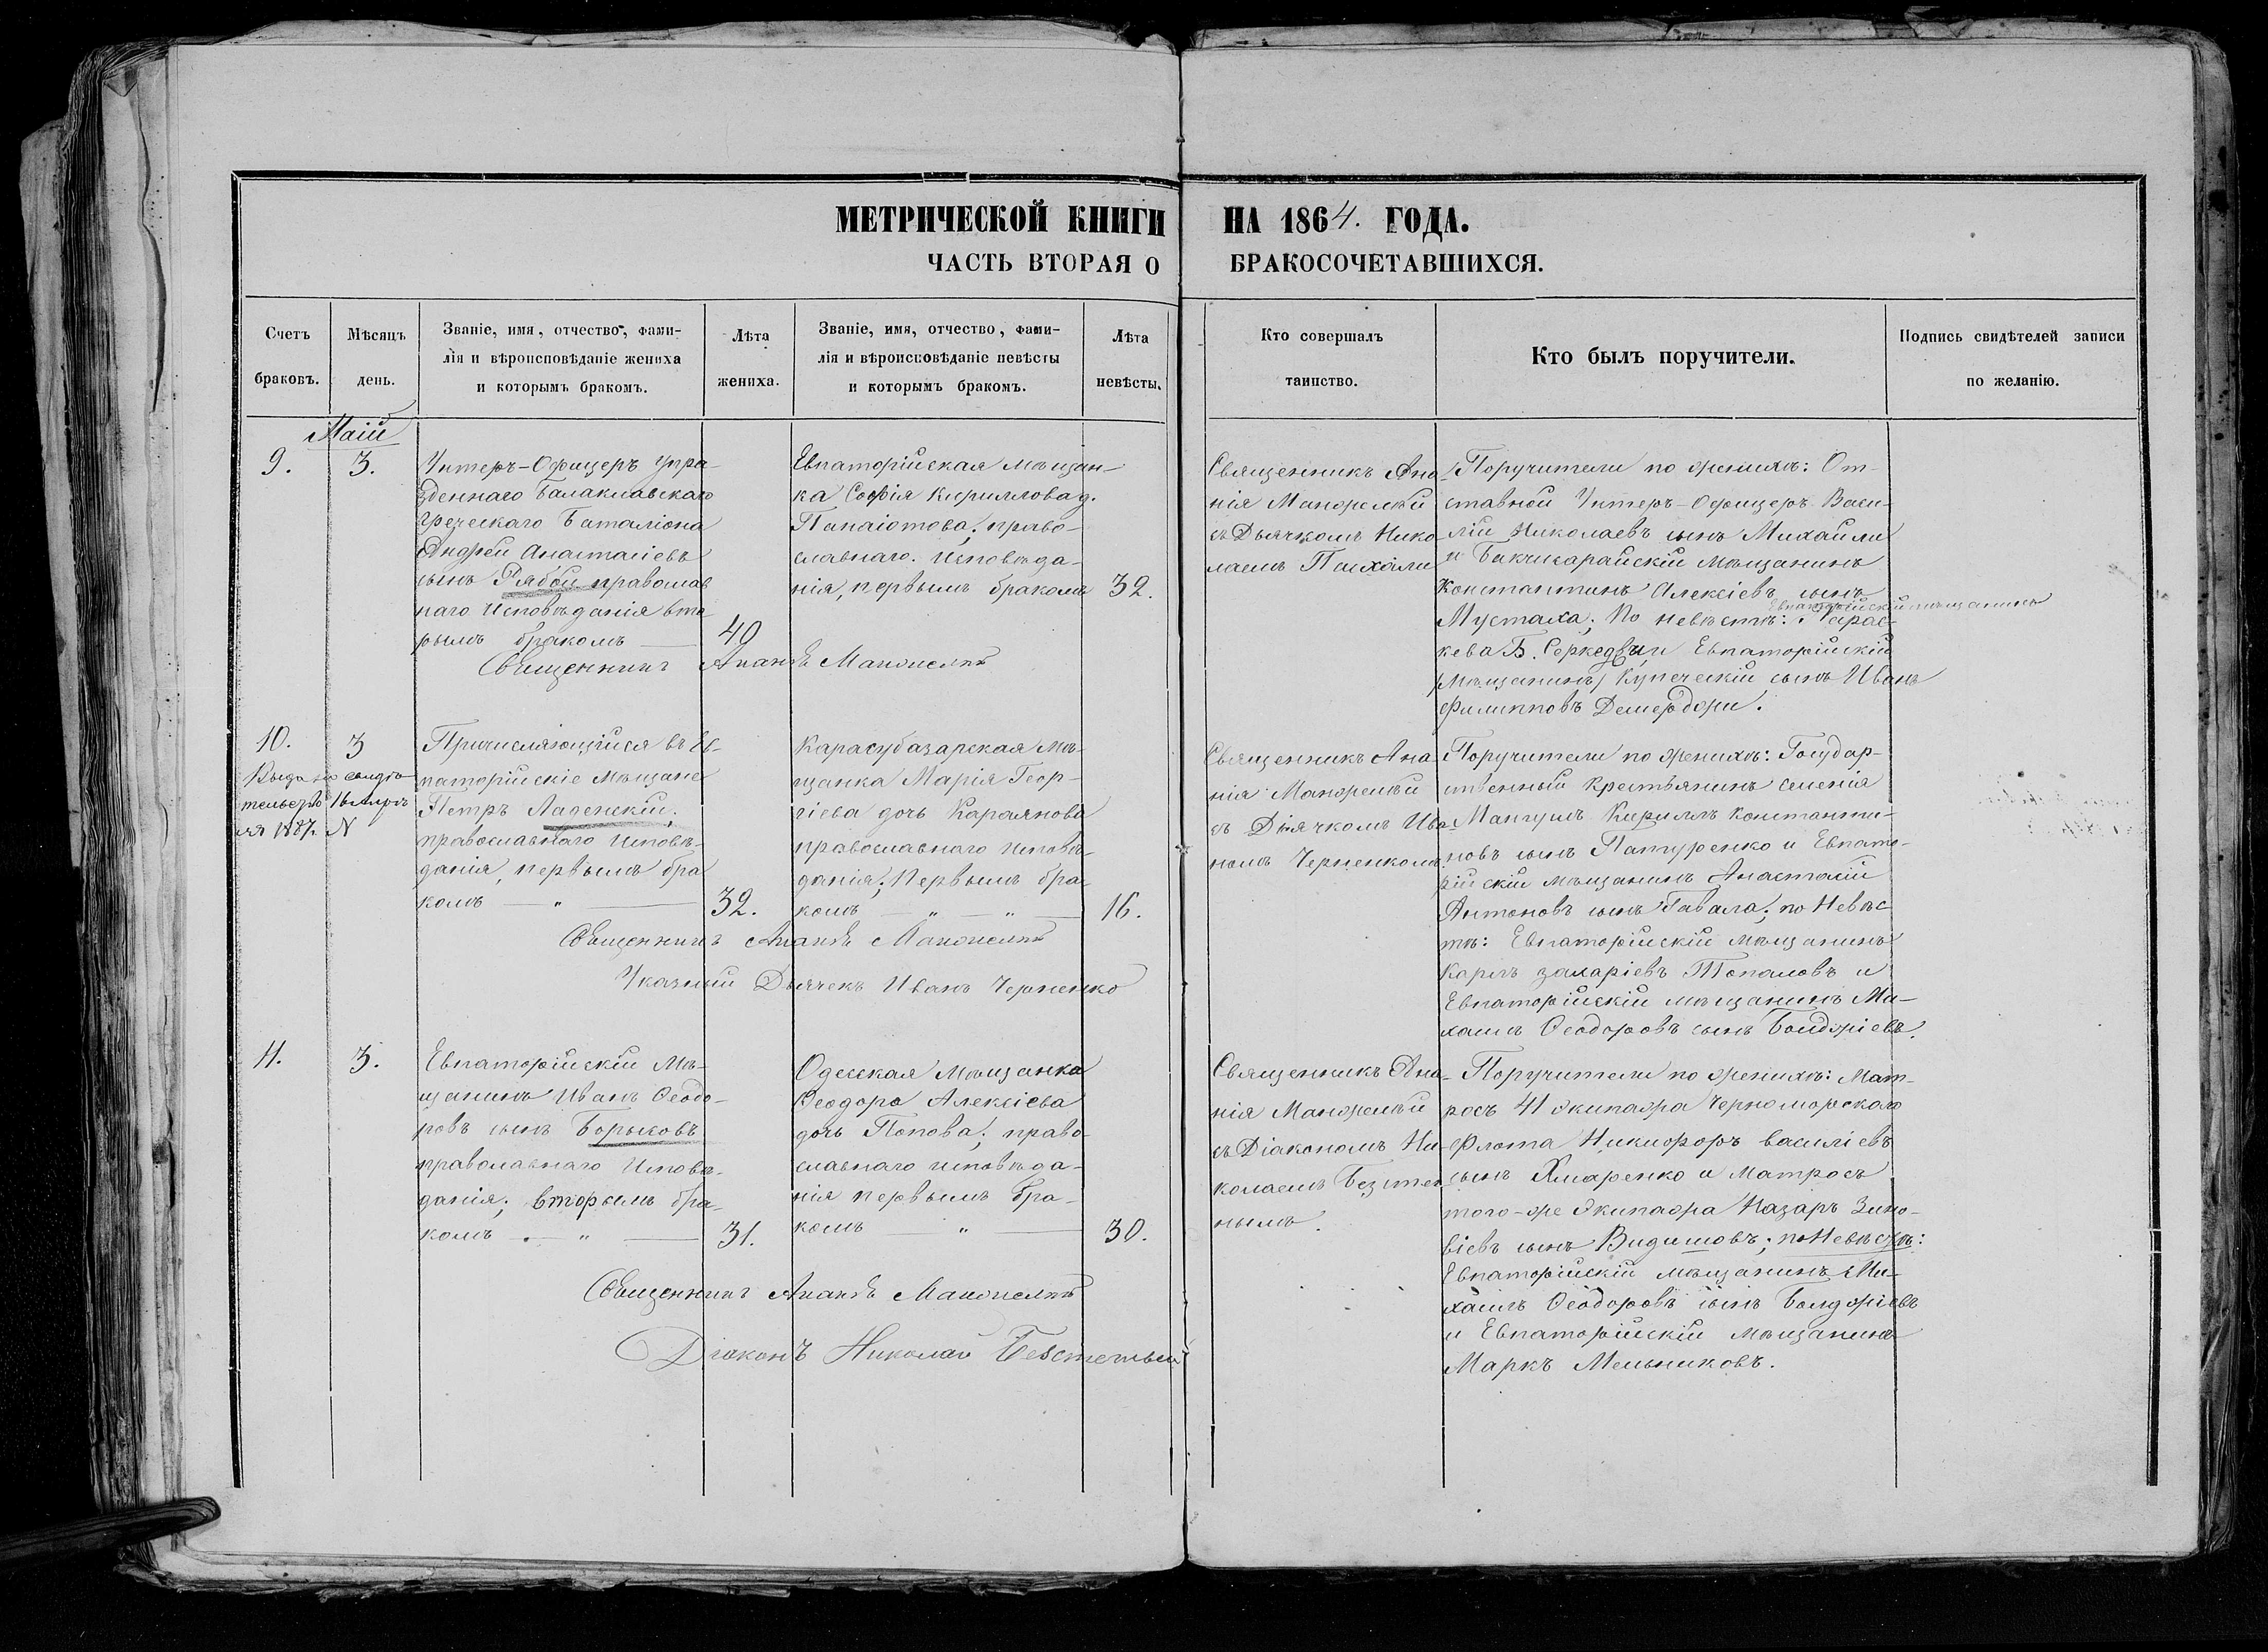 МЕТРИЧЕСКОЙ КНИГИ НА 1864. ГОДА.
ЧАСТЬ ВТОРАЯ О БРАКОСОЧЕТАВШИХСЯ.
Счетъ
браковъ.
Мѣсяцъ
день.
Званіе, имя, отчество, фами-
лія и вѣроисповѣданіе жениха
и которымъ бракомъ.
Лѣта
жениха.
Званіе, имя, отчество, фами-
лія и вѣроисповѣданіе невѣсты
и которымъ бракомъ.
Лѣта
невѣсты.
Кто совершалъ
таинство.
Кто былъ поручители.
Подпись свидѣтелей записи
по желанію.
Маій
9.
3.
Унтеръ-Офицеръ Упра-
здненнаго Балаклавскаго
Греческаго Баталіона
Андрей Анастасіевъ
сынъ Рябой православ
наго Исповѣданія вто
рымъ бракомъ
40
Евпаторійская мѣщан-
ка Софія Кириллова д.
Панаіотова; право-
славнаго. Исповѣда-
нія, первымъ бракомъ
32.
Священникъ Ана
нія
съ Дьячкомъ Нико-
лаемъ Пасхали
Поручители по женихѣ: От-
ставной Унтеръ-Офицеръ Васи-
лій Николаевъ сынъ Михайли
и Бакчисарайскій мѣщанинъ
Константинъ Алексіевъ сынъ
Мустаха; По невѣстѣ:
Евпаторійскій мѣщанинъ
Евпаторійскій
Мѣщанинъ Купеческій сынъ Иванъ
Филипповъ
Священникъ Ананія
10.
3
Выдано свидѣ
тельство
1887. N
Причисляющійся въ Ев-
паторійскіе Мѣщане
Петръ Лапенскій;
православнаго Исповѣ-
данія, первымъ бра
комъ — „ —
32.
Карасубазарская Мѣ-
щанка Марія Геор-
гіева дочь Караянова
православнаго Исповѣ-
данія; Первымъ бра
комъ — „ — „ —
16.
Священникъ Ана
нія
съ Діячкомъ Ива-
номъ Черненкомъ.
Поручители по женихѣ: Государ-
ственный Крестьянинъ селенія
Мангушъ Кириллъ Константи-
новъ сынъ Патуренко и Евпато-
рійскій мѣщанинъ Анастасій
Антоновъ сынъ Гавала; по Невѣс
тѣ: Евпаторійскій мѣщанинъ
Карпъ Захаріевъ Топаловъ и
Евпаторійскій мѣщанинъ Ми-
хаилъ Ѳеодоровъ сынъ
Священникъ Ананія
Указный Дьячекъ Иванъ Черненко
11.
3.
Евпаторійскій Мѣ-
щанинъ Иванъ Ѳеодо-
ровъ сынъ Борыковъ
православнаго Исповѣ-
данія; вторымъ бра-
комъ — „ —
31.
Одесская Мѣщанка
Ѳеодора Алексіева
дочь Попова; право-
славнаго исповѣда-
нія первымъ бра-
комъ „ —
30.
Священникъ Ана-
нія
съ Діакономъ Ни-
колаемъ
нымъ.
Поручители по женихѣ: Мат-
росъ 41 экипажа Черноморскаго
Флота Никифоръ Василіевъ
сынъ Хмаренко и Матросъ
того-же Экипажа Назаръ Зино-
віевъ сынъ Видишовъ; по Невѣстѣ:
Евпаторійскій мѣщанинъ Ми-
хаилъ Ѳеодоровъ сынъ
и Евпаторійскій мѣщанинъ
Маркъ Мельниковъ.
Священникъ Ананія
Діаконъ Николай